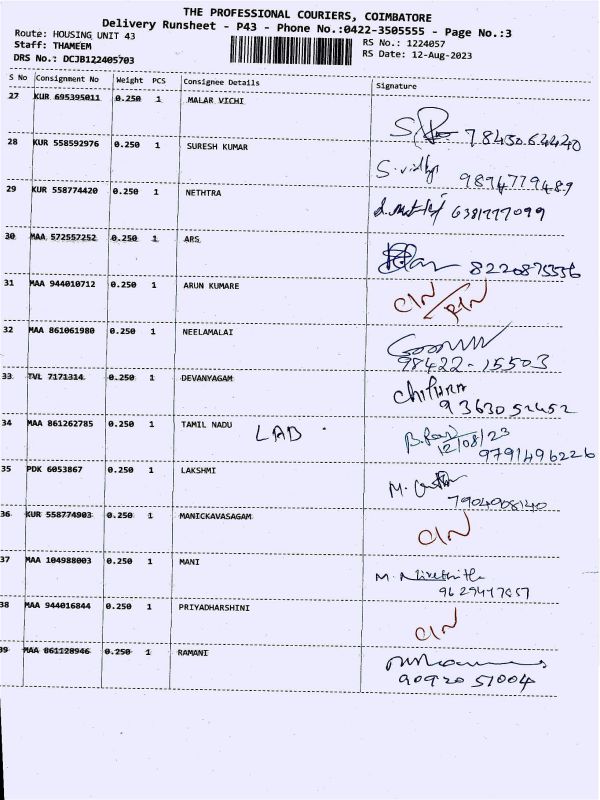 THE PROFESSIONAL COURIERS, COIMBATORE
Delivery Runsheet - P43 - Phone No.:0422-3505555 - Page No.:3
Route: HOUSING UNIT 43 RS No.: 1224057
Staff: THAMEEM RS Date: 12-Aug-2023
DRS No.: DCJB122405703
S No Consignment No Weight PCS Consignee Details Signature
27 KUR 695395011 0.250 1 MALAR VICHI
7845062420
28 KUR 558592976 0.250 1 SURESH KUMAR
9894779489
29 KUR 558774420 0.250 1 NETHTRA
6381777099
30 MAA 572557252 0.250 1 ARS
8220875556
31 MAA 944010712 0.250 1 ARUN KUMARE
CIN
32 MAA 861061980 0.250 1 NEELAMALAI
98422-15503
33 TVL 7171314 0.250 1 DEVANYAGAM
CHITHRA
9363052452
34 MAA 861262785 0.250 1 TAMIL NADU
LAB
12/08/23
9791496226
35 PDK 6053867 0.250 1 LAKSHMI
M.
7904908140
36 KUR 558774903 0.250 1 MANICKAVASAGAM
CIN
37 MAA 104988003 0.250 1 MANI
M. Nivethitha
38 MAA 944016844 0.250 1 PRIYADHARSHINI
CIN
39 MAA 861128946 0.250 1 RAMANI
90920 51004